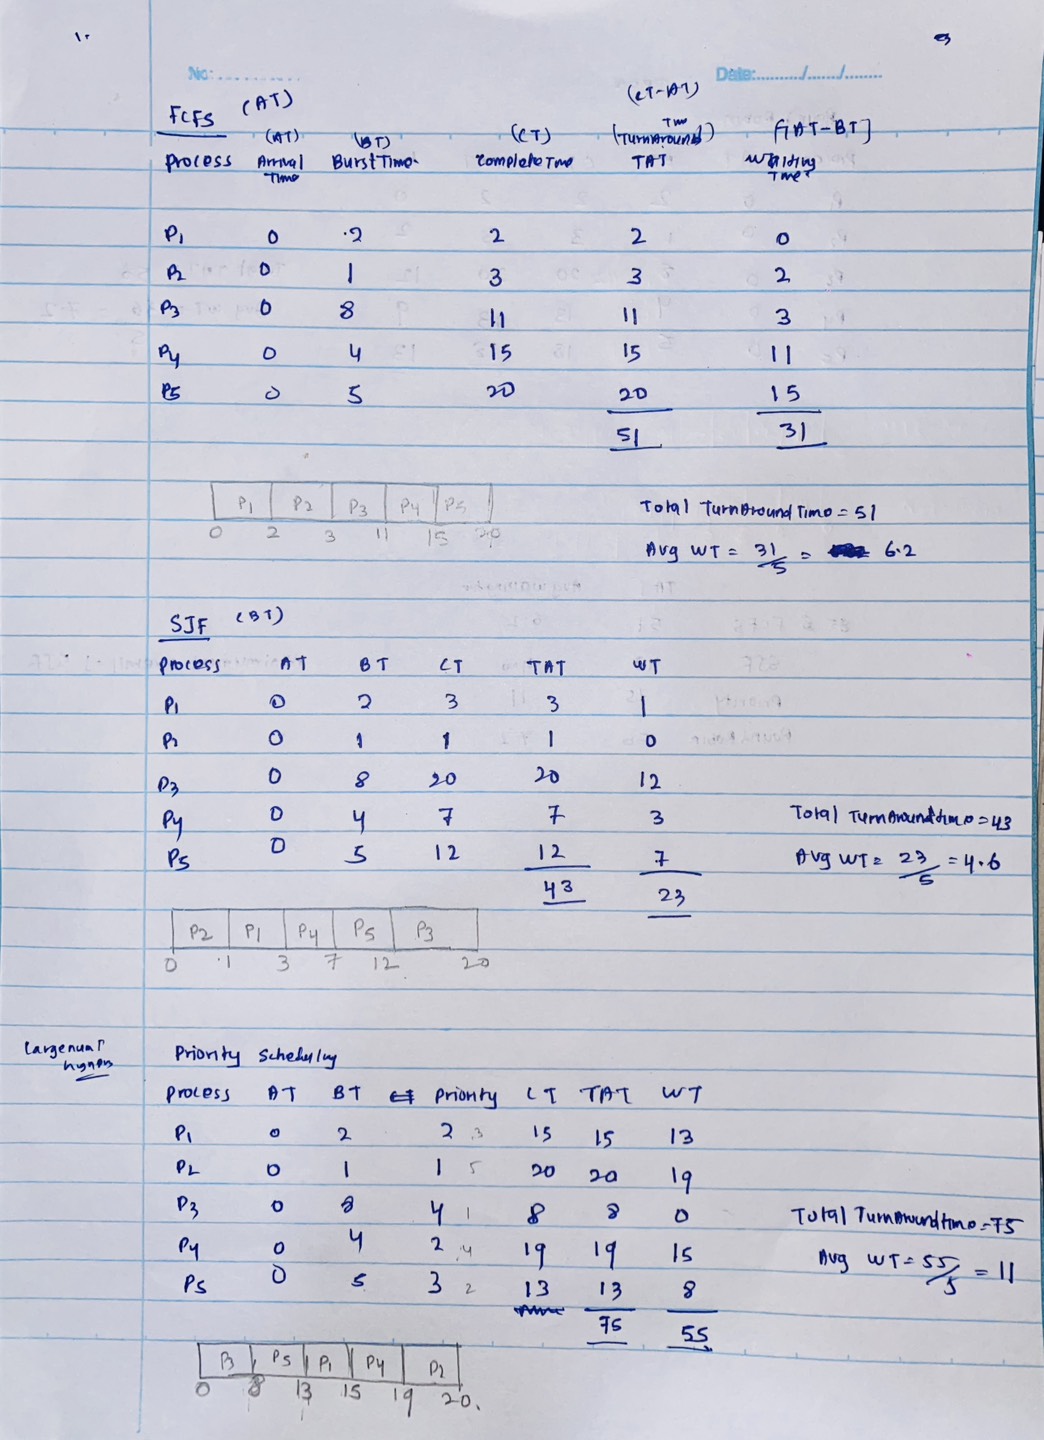 1.
No: ..........
Date:........../......./........
FCFS (AT)
(CT-AT)
(AT) (BT) (CT) (TurnAround Tim) [TAT-BT]
Process Arrival Time Burst Time Complete Time TAT Waiting Time
P1 0 2 2 2 0
P2 0 1 3 3 2
P3 0 8 11 11 3
P4 0 4 15 15 11
P5 0 5 20 20 15
51 31
P1 P2 P3 P4 P5
0 2 3 11 15 20
Total TurnAround Time = 51
Avg WT = 31/5 = 6.2
SJF (BT)
Process AT BT CT TAT WT
P1 0 2 3 3 1
P2 0 1 1 1 0
P3 0 8 20 20 12
P4 0 4 7 7 3
P5 0 5 12 12 7
43 23
Total TurnAround time = 43
Avg WT = 23/5 = 4.6
P2 P1 P4 P5 P3
0 1 3 7 12 20
Priority Scheduling
Process AT BT Priority CT TAT WT
P1 0 2 2 3 15 15 13
P2 0 1 1 5 20 20 19
P3 0 8 4 1 8 8 0
P4 0 4 2 4 19 19 15
P5 0 5 3 2 13 13 8
75 55
Total TurnAround time = 75
Avg WT = 55/5 = 11
P3 P5 P1 P4 P2
0 8 13 15 19 20.